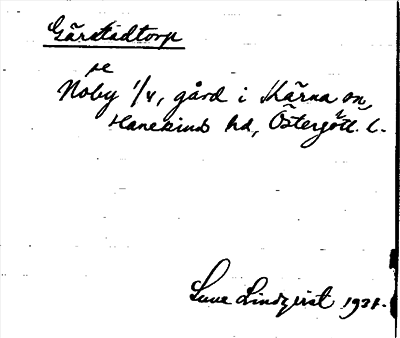 Gärstadtorp
se
Noby 1/4, gård i Kärna sn,
Hanekinds hd, Östergötl. l.
Sune Lindqvist 1931.